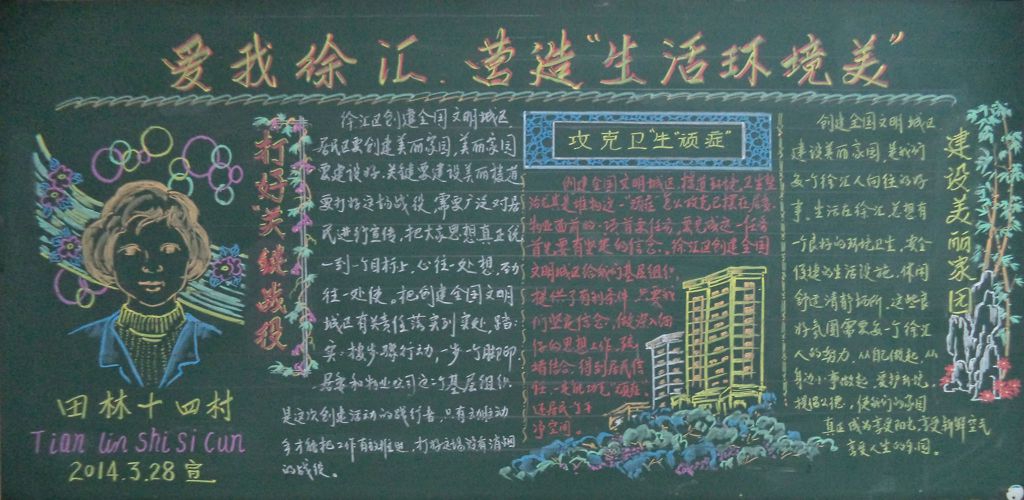 爱我徐汇.营造"生活环境美"
打好关键战役
徐汇区创建全国文明城区
居民区要创建美丽家园,美丽家园
要建设好,关键要建设美丽楼道
要打好这场战役,需要广泛对居
民进行宣传,把大家思想真正统
一到一个目标上,心往一处想,劲
往一处使。把创建全国文明
城区有关责任落实到实处,踏
实按步骤行动,一步一个脚印
居委和物业公司这个基层组织
是这次创建活动的践行者,只有主动
才能把工作有效推进,打好这场没有消烟
的战役。
攻克卫"生"顽症"
创建全国文明城区,楼道环境卫生整
物业面前的一项首来任务,要完成这一任务
首先要有坚定的信念。徐汇区创建全国
文明城区给我们基层组织
提供了有利条件,只要我
们坚定信念,做深入细
仔的思想工作,
得到居民信
任,一定能攻克顽症
还居民干
净空间。
创建全国文明城区
建设美丽家园,是我们
每个徐汇人向往的好
事。生活在徐汇,想有
一个良好的环境卫生,安全
便捷的生活设施,休闲
舒适清静场所,这些良
好氛围需要每个徐汇
人的努力,从我做起,从
身边小事做起,爱护环境,
使我们的家园
真正成为享受阳光,享受新鲜空气
享受人生的乐园。
建设美丽家园
田林十四村
Tian lin shi si cun
2014.3.28宣